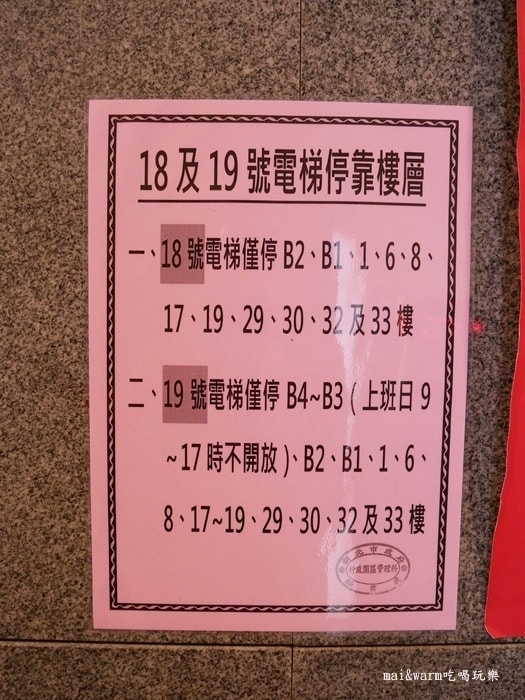 18 及 19 號電梯停靠樓層
一、18 號電梯僅停 B2、B1、1、6、8、
17、19、29、30、32 及 33 樓
二、19 號電梯僅停 B4~B3 ( 上班日 9
~17 時不開放 )、B2、B1、1、6、
8、17~19、29、30、32 及 33 樓
新北市政府
行政園區管理科
秘書處
mai&warm吃喝玩樂